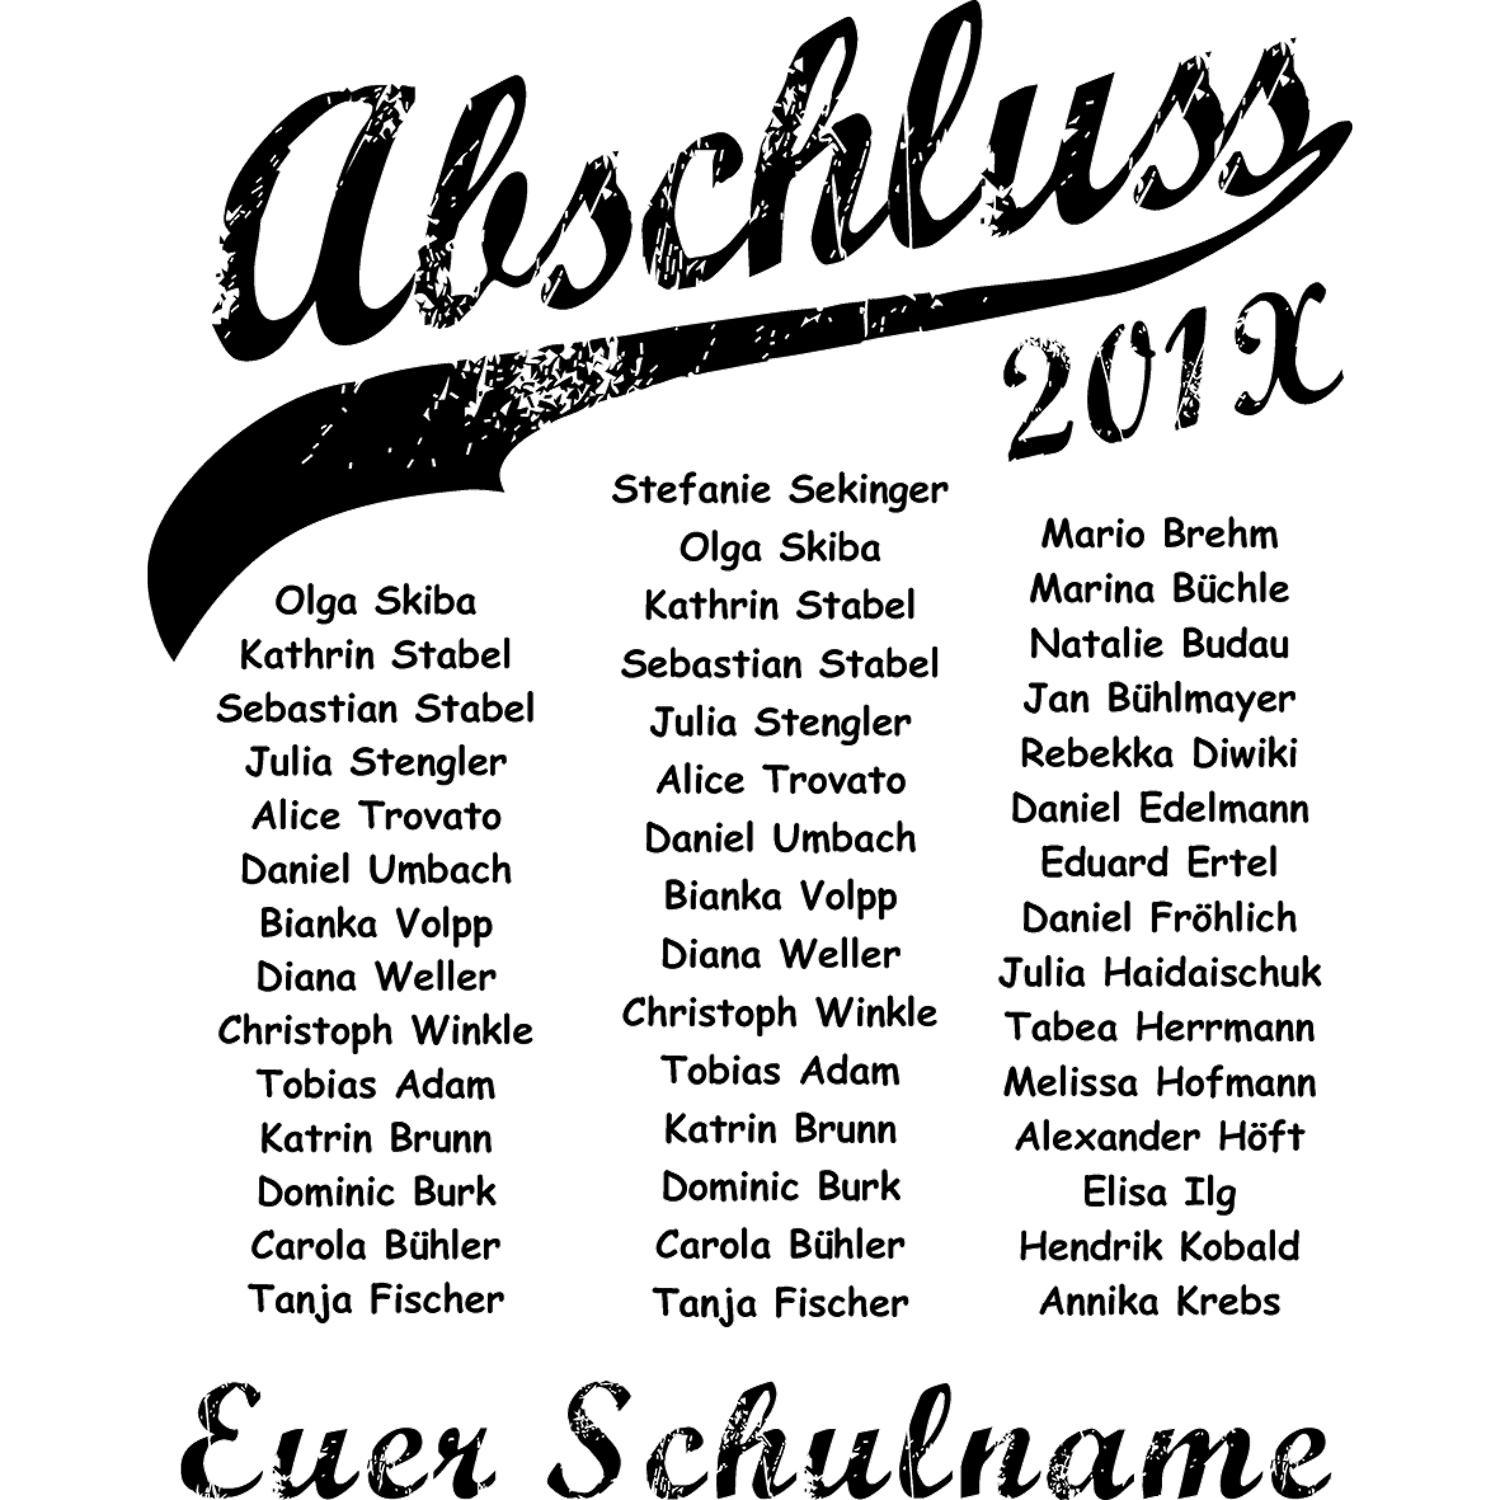 Abschluss
201X
Olga Skiba
Kathrin Stabel
Sebastian Stabel
Julia Stengler
Alice Trovato
Daniel Umbach
Bianka Volpp
Diana Weller
Christoph Winkle
Tobias Adam
Katrin Brunn
Dominic Burk
Carola Bühler
Tanja Fischer
Stefanie Sekinger
Olga Skiba
Kathrin Stabel
Sebastian Stabel
Julia Stengler
Alice Trovato
Daniel Umbach
Bianka Volpp
Diana Weller
Christoph Winkle
Tobias Adam
Katrin Brunn
Dominic Burk
Carola Bühler
Tanja Fischer
Mario Brehm
Marina Büchle
Natalie Budau
Jan Bühlmayer
Rebekka Diwiki
Daniel Edelmann
Eduard Ertel
Daniel Fröhlich
Julia Haidaischuk
Tabea Herrmann
Melissa Hofmann
Alexander Höft
Elisa Ilg
Hendrik Kobald
Annika Krebs
Euer Schulname